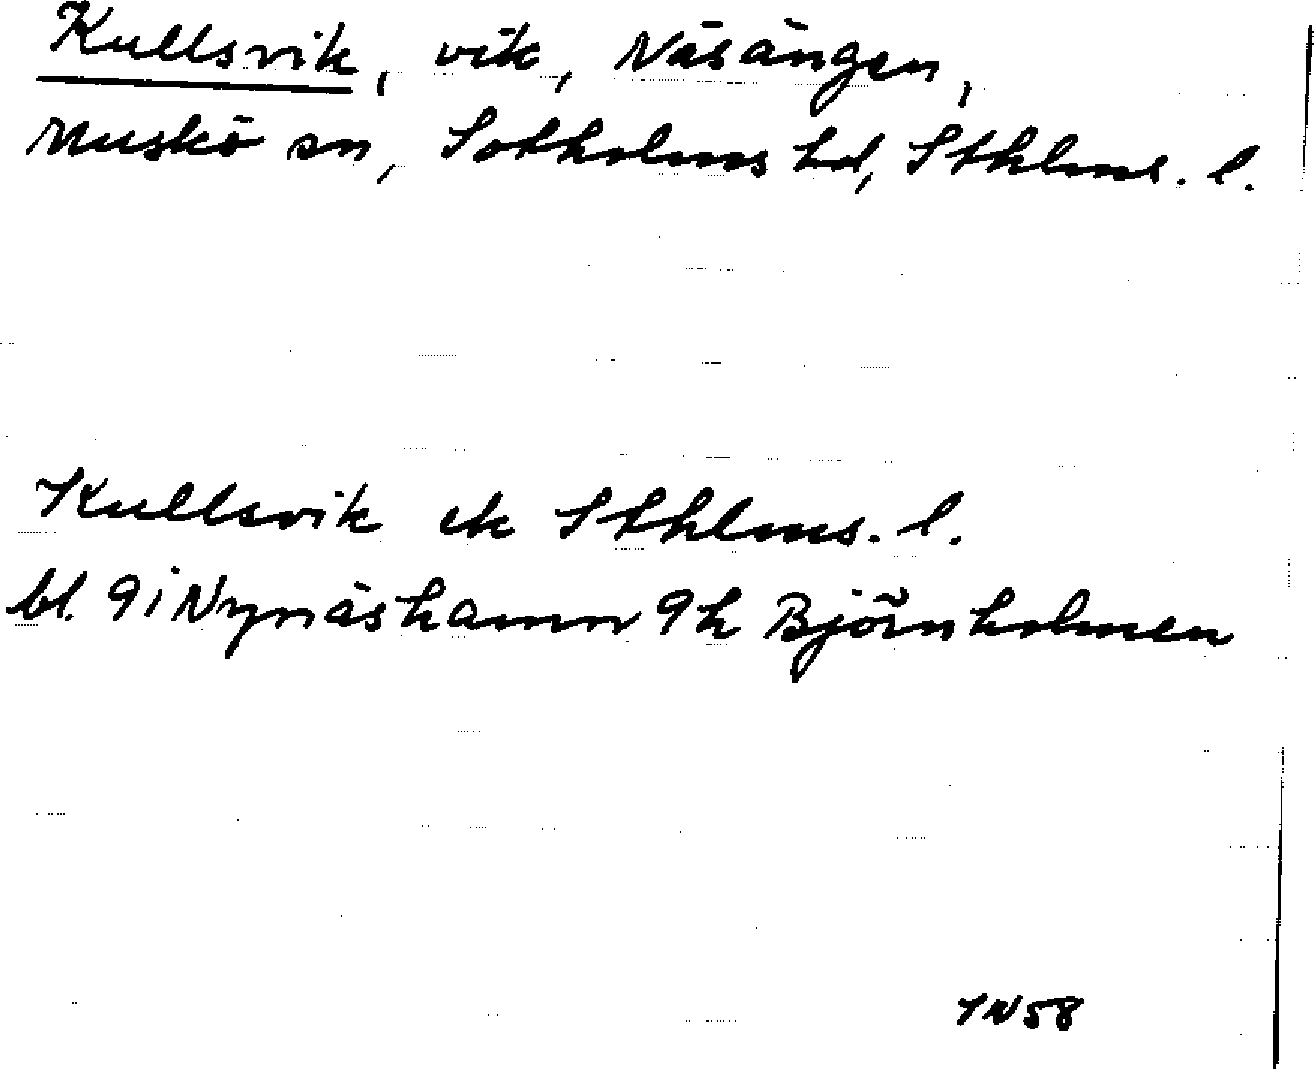 Kullsvik, vik, Näsängen,
Muskö sn, Sotholms hd, Sthlms. l.
Kullsvik ek Sthlms. l.
bl. 9i Nynäshamn 9h Björnholmen
IN58